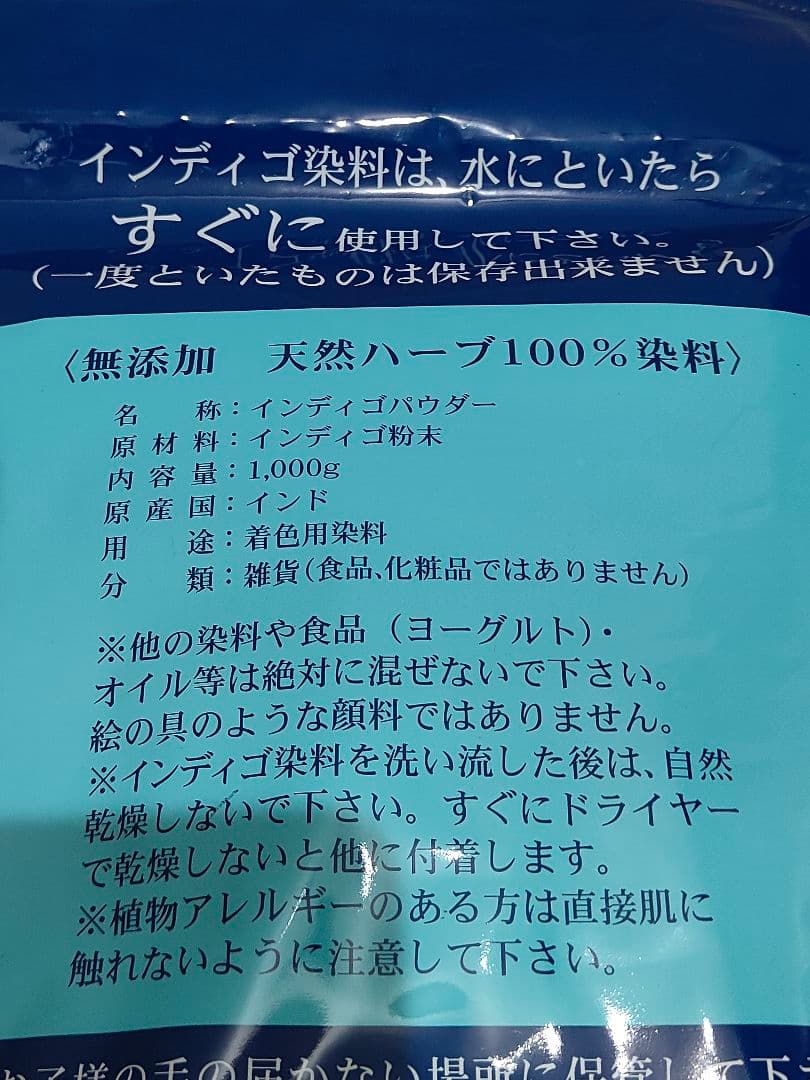 インディゴ染料は、水にといたら
すぐに使用して下さい。
(一度といたものは保存出来ません)
〈無添加　天然ハーブ100%染料〉
名称：インディゴパウダー
原材料：インディゴ粉末
内容量：1,000g
原産国：インド
用途：着色用染料
分類：雑貨(食品、化粧品ではありません)
※他の染料や食品（ヨーグルト)・
オイル等は絶対に混ぜないで下さい。
絵の具のような顔料ではありません。
※インディゴ染料を洗い流した後は、自然
乾燥しないで下さい。すぐにドライヤー
で乾燥しないと他に付着します。
※植物アレルギーのある方は直接肌に
触れないように注意して下さい。
お子様の手の届かない場所に保管して下